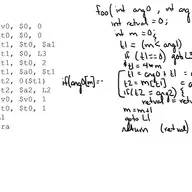 v0, $0, 0
t0, $0, 0
t1, $t0, $a1
t1, $0, L3
t1, $t0, 2
t1, $a0, $t1
t2, 0($t1)
t2, $a2, L2
v0, $v0, 1
t0, $t0, 1
L1
ra
if(arg0[m]==
foo( int arg0 , int ar
int retval = 0;
int m = 0;
t1 = (m < arg1)
if (t1 == 0) goto L3
t1 = 4*m
t1 = arg0 + t1
t2 = m[t1]
if(t2 = arg2) {
retval =
m = m+1
goto L1
return (retval)